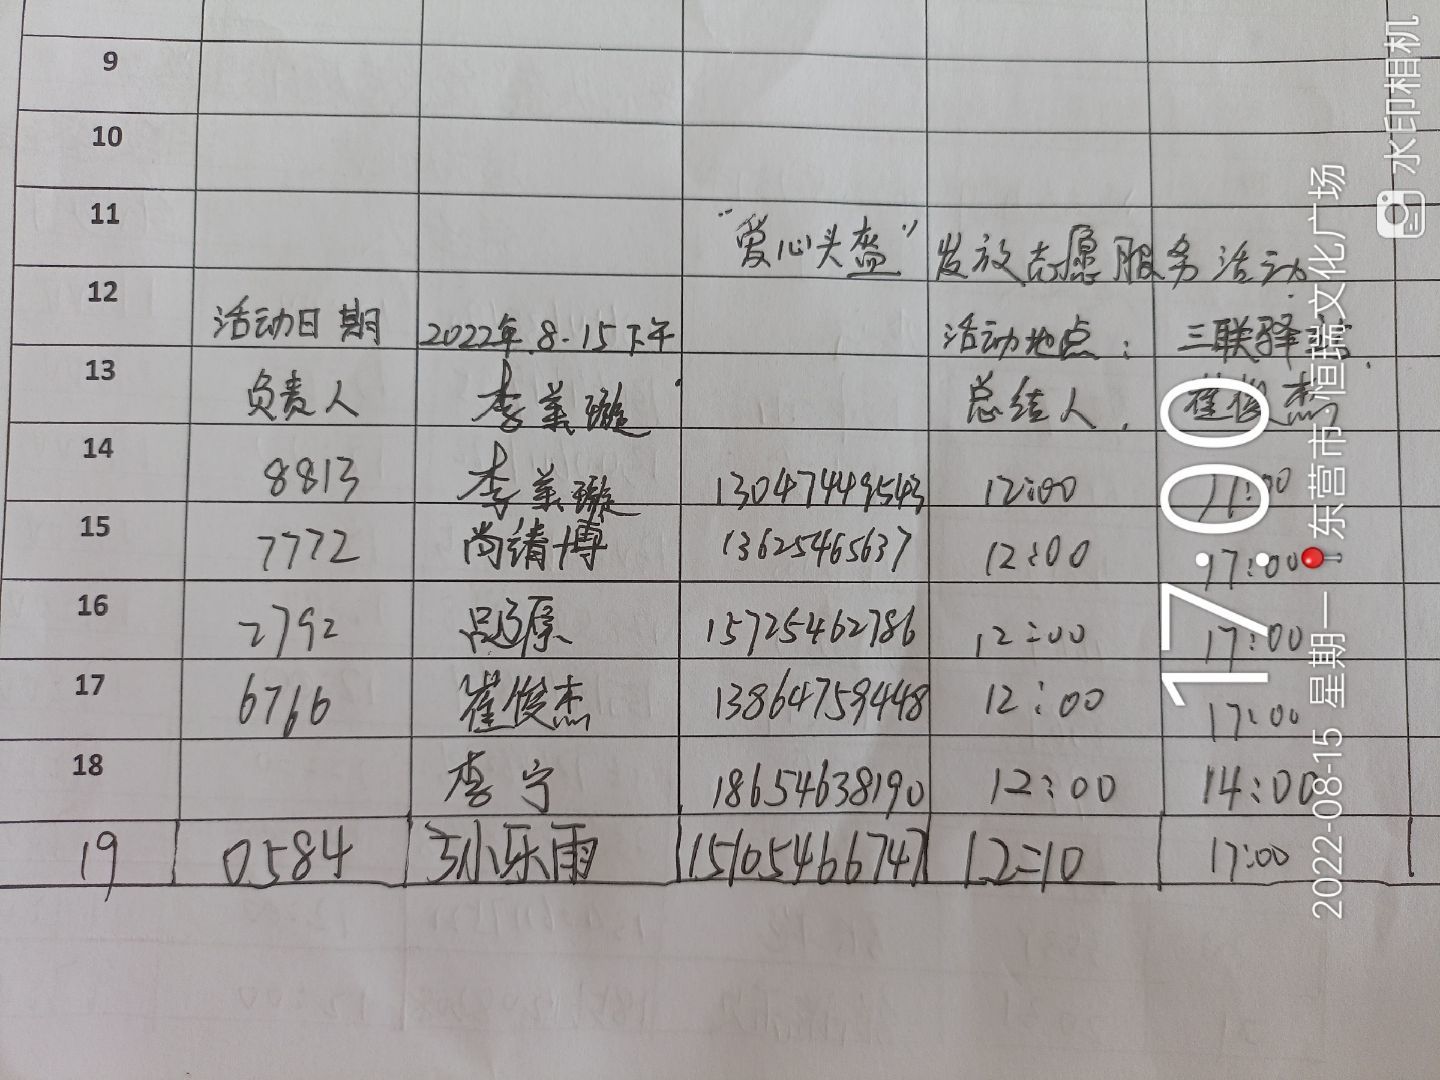 9
10
11 "爱心头盔" 发放志愿服务活动
12 活动日期 2022年.8.15下午 活动地点: 三联驿
13 负责人 李美璇 总结人. 崔俊杰
14 8813 李美璇 13047449543 12:00 17:00
15 7772 尚靖博 13625465637 12:00 17:00
16 2792 吕 原 15725462786 12:00 17:00
17 6766 崔俊杰 13864759448 12:00 17:00
18 李宁 18654638190 12:00 14:00
19 0584 孙乐雨 15105466747 12:10 17:00
17:00
2022-08-15 星期一 东营市·恒瑞文化广场
水印相机